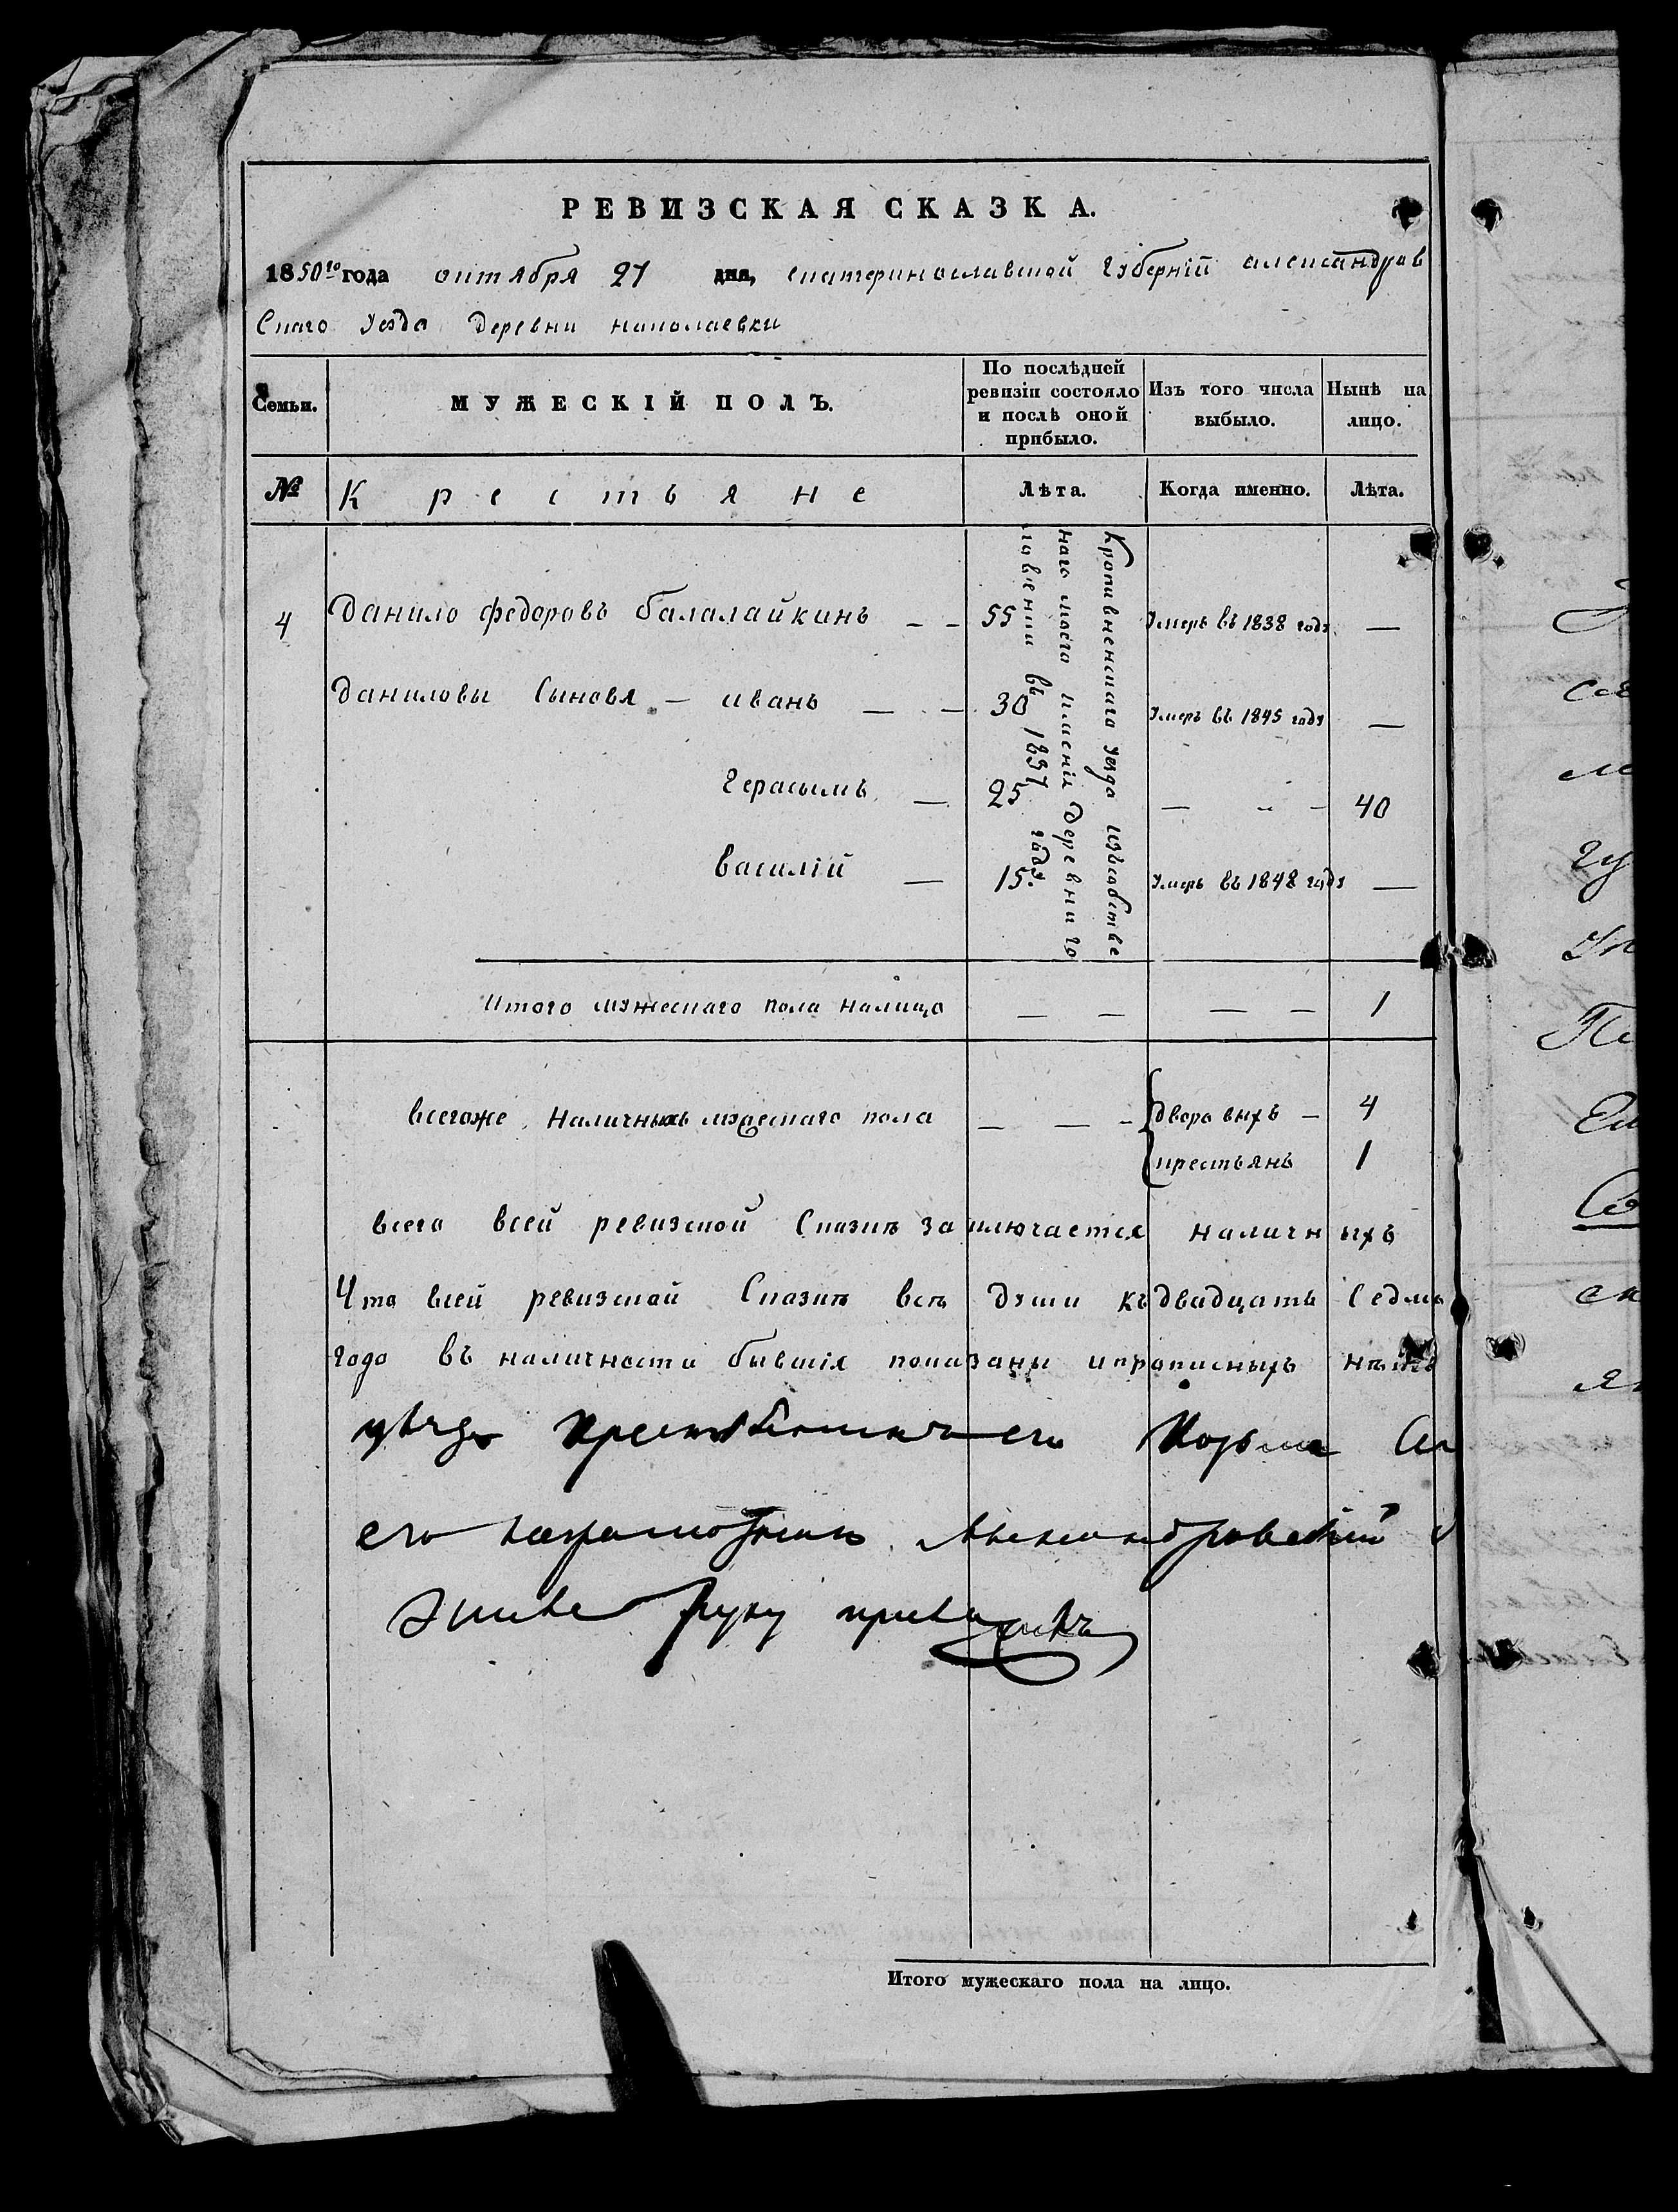 РЕВИЗСКАЯ СКАЗКА.
1850го года октября 27 дня, екатеринославской губернiй александров
скаго уезда деревни николаевки
Семьи.
МУЖЕСКІЙ ПОЛЪ.
По послѣдней ревизіи состояло и послѣ оной прибыло.
Изъ того числа выбыло.
Нынѣ на лицо.
№
Крестьяне
Лѣта.
Когда именно.
Лѣта.
4 Данило федоровъ балалайкинъ — — 55 умеръ въ 1838 годУ —
даниловы сыновя — иванъ — — 30 умеръ въ 1845 годУ —
герасымъ — 25 — „ — 40
василій — 15. умеръ въ 1848 годУ —
уезда изъсобстве
наго моего именiя деревни го
въ 1837 году
Итого мужескаго пола налицо — — — — 1
всегоже наличныхъ мужескаго пола — — — дворовыхъ — 4
крестьянъ 1
всего всей ревизской сказкѣ заключается наличныхъ
Что всей ревизской сказкѣ всѣ души къ двадцать седмо
года въ наличности бывшiя показаны ипрописныхъ нѣтъ
его Александровскій
руку приложилъ
Итого мужескаго пола на лицо.